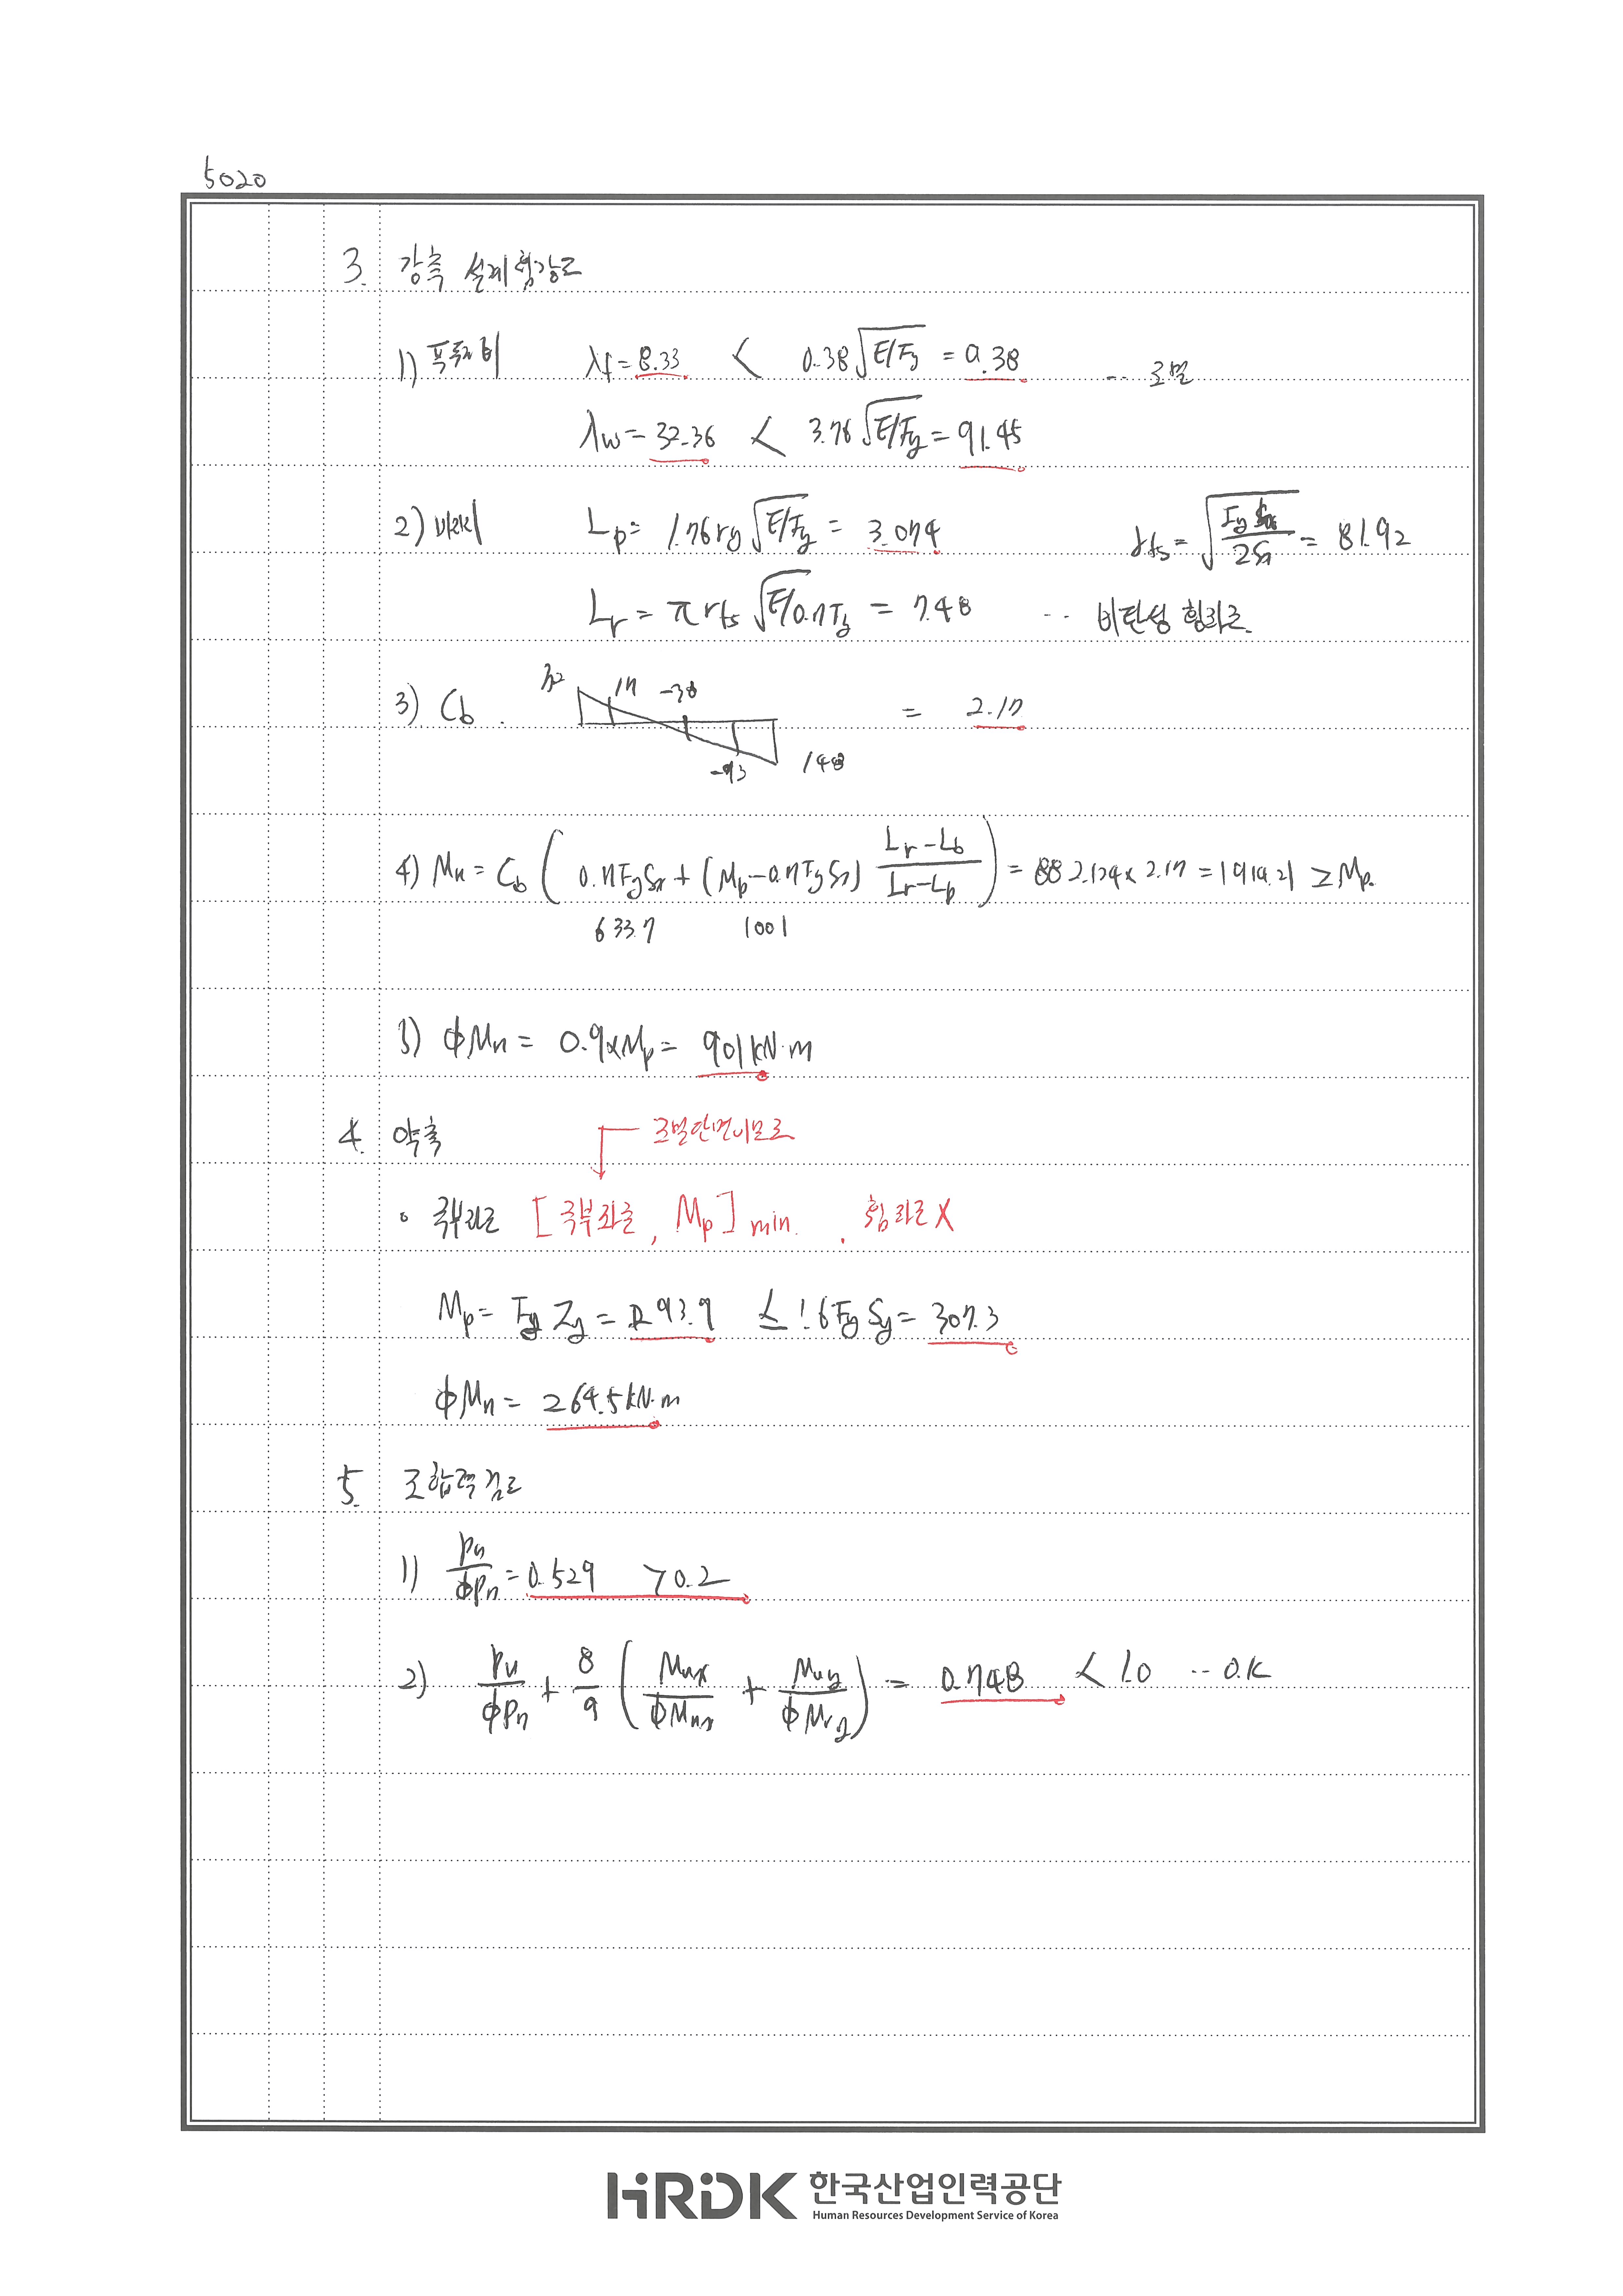 5020
3. 강축 설계휨강도
1) 폭두께비 λf = 8.33 < 0.38√E/Fy = 9.38 ‥ 조밀
λw = 32.36 < 3.76√E/Fy = 91.45
2) Lp = 1.76ry√E/Fy = 3.074 rts = √(Iy ho/2Sx) = 81.92
Lr = πrts√E/0.7Fy = 7.48 ‥ 비탄성 휨좌굴
3) Cb. 32 17 -38 -93 148 = 2.17
4) Mn = Cb(0.7FySx + (Mp-0.7FySx) (Lr-Lb)/(Lr-Lp)) = 882.124 x 2.17 = 1914.21 ≥ Mp.
633.7 1001
5) φMn = 0.9xMp = 901kN·m
4. 약축 조밀단면이므로
∘ 국부좌굴 [국부좌굴, Mp] min. . 휨좌굴 X
Mp = Fy Zy = 293.9 ≤ 1.6FySy = 307.3
φMn = 264.5kN·m
5. 조합력검토
1) Pu/φPn = 0.529 > 0.2
2) Pu/φPn + 8/9 (Mux/φMnx + Muy/φMny) = 0.748 < 1.0 ‥ O.K
HRDK 한국산업인력공단
Human Resources Development Service of Korea